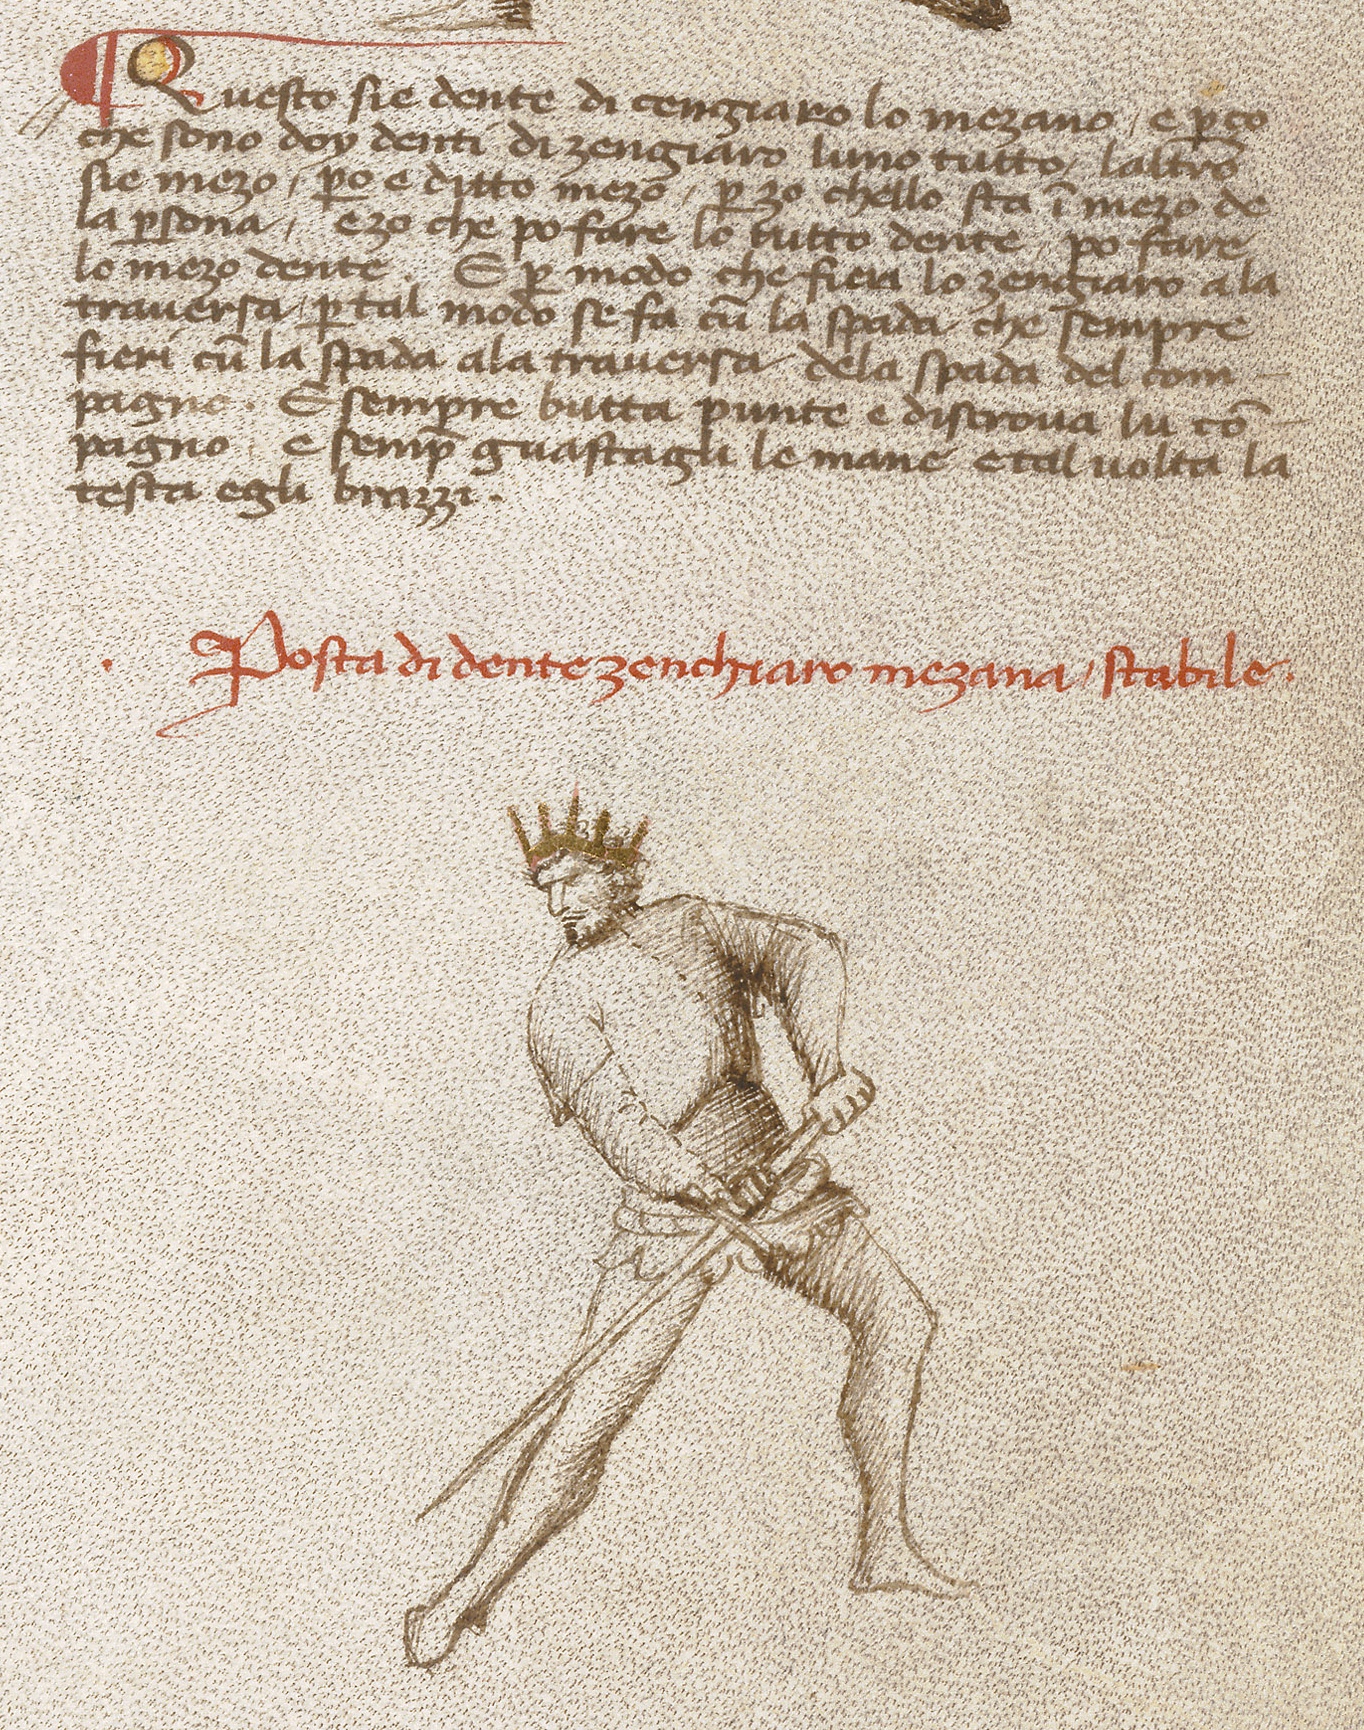 Questo sie dente di cengiaro lo mezano, e p̱ço
che sono doy denti di zengiaro luno tutto, laltro
sie mezo, p̱o e ditto mezo, p̱ zo chello sta ī mezo de
la p̱sona, ezo che po fare lo tutto dente, po fare
lo mezo dente. E p̱ modo che fieri lo zengiaro ala
traversa, p̱ tal modo se fa cū la spada che sempre
fieri cū la spada ala traversa dela spada del com-
pagno. E sempre butta punte e discrova lu cō-
pagno, e semp̱ guastagli le mane e tal volta la
testa egli brazzi.
Posta di dente zenchiaro mezana, stabile.